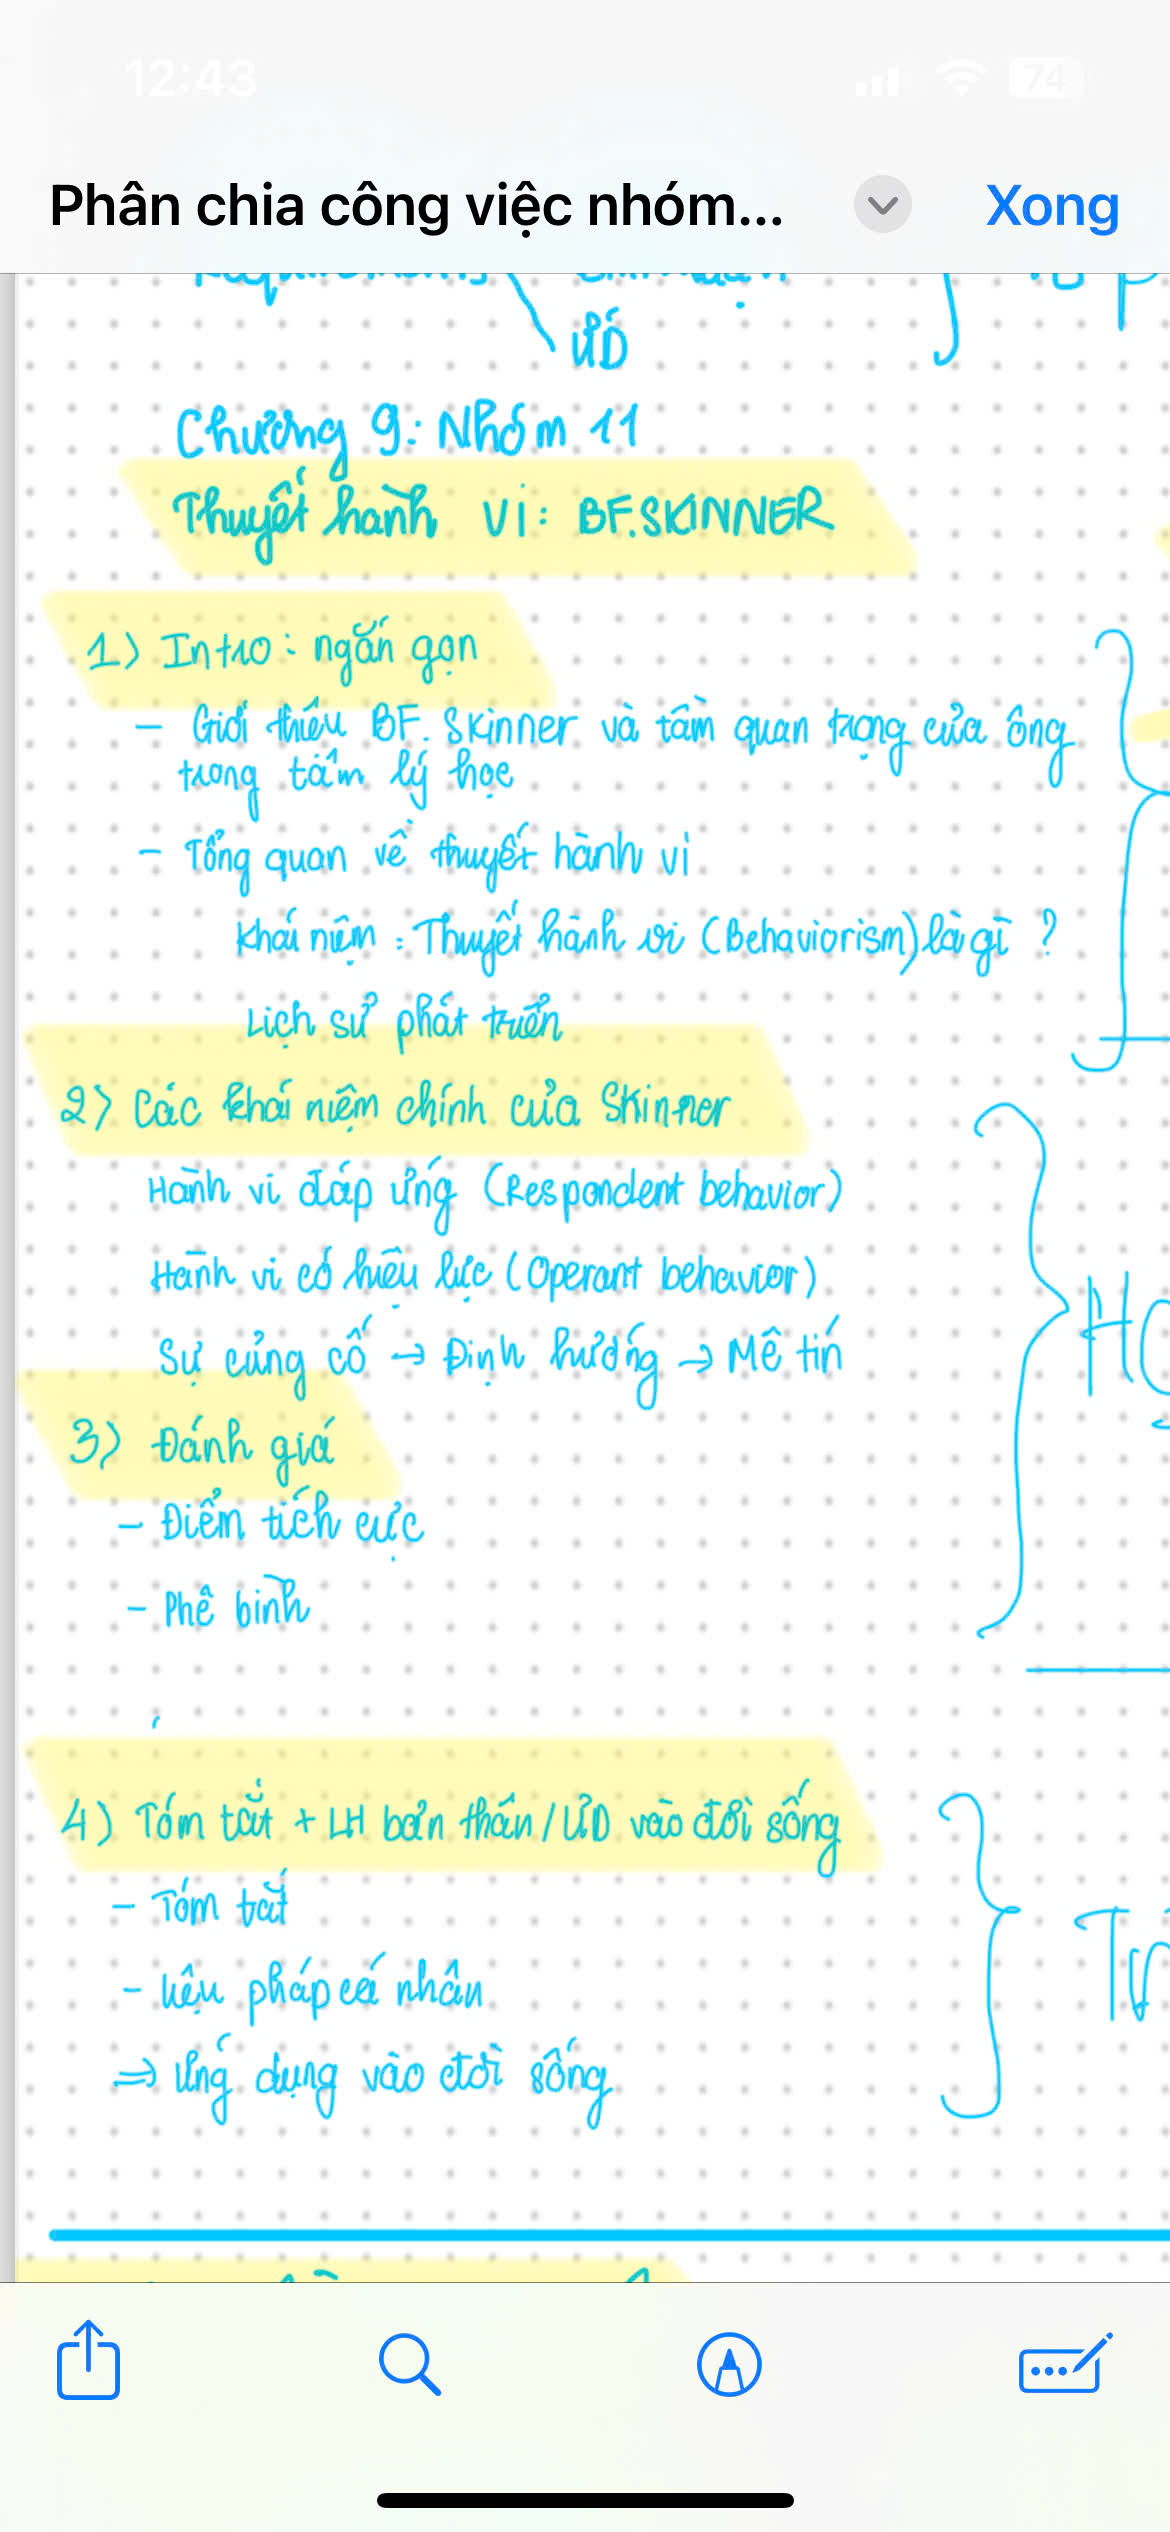 12:43
74
Phân chia công việc nhóm...
Xong
ƯD
Chương 9: Nhóm 11
Thuyết hành vi: BF.SKINNER
1) Intro: ngắn gọn
- Giới thiệu BF. Skinner và tầm quan trọng của ông
trong tâm lý học
- Tổng quan về thuyết hành vi
Khái niệm: Thuyết hành vi (Behaviorism) là gì?
Lịch sử phát triển
2) Các khái niệm chính của Skinner
Hành vi đáp ứng (Respondent behavior)
Hành vi có hiệu lực (Operant behavior)
Sự củng cố → Định hướng → Mê tín
3) Đánh giá
- Điểm tích cực
- Phê bình
4) Tóm tắt + LH bản thân/ƯD vào đời sống
- Tóm tắt
- pháp cá nhân
⇒ Ứng dụng vào đời sống